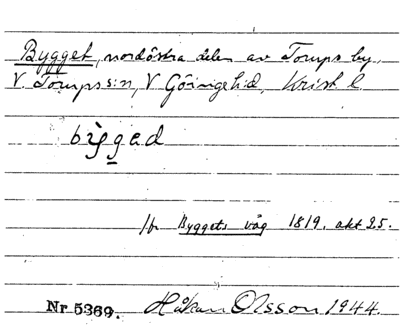 Bygget, nordöstra delen av Torups by,
V. Torups s:n, V Göinge hd, Krist l
bỳgged
jfr Byggets väg 1819. akt 25.
Nr 5369. Håkan Olsson 1944.